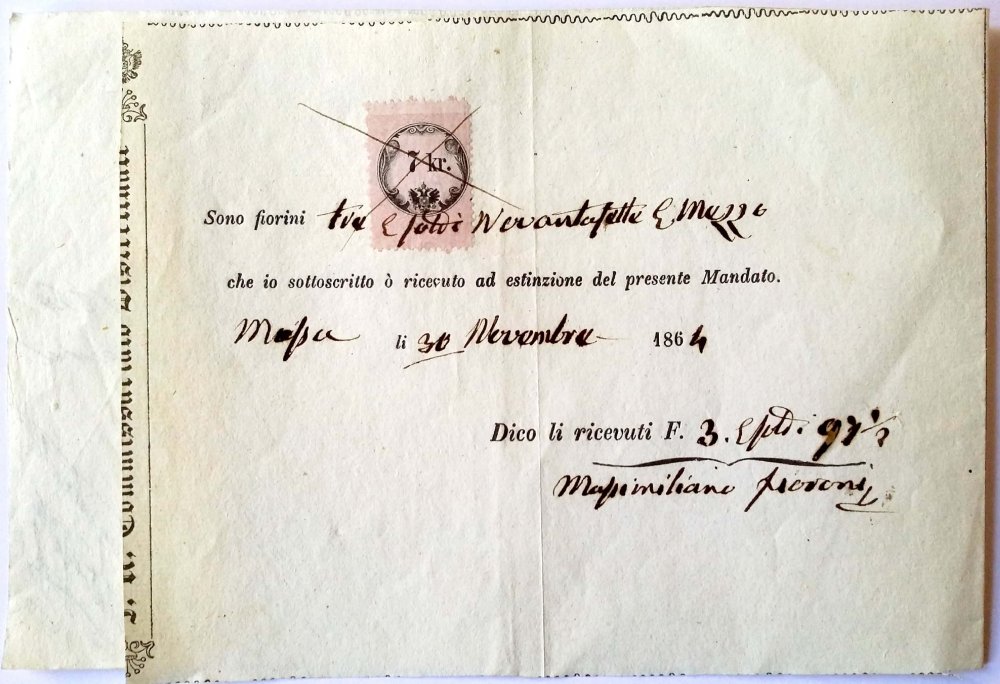 7 kr.
Sono fiorini tre e soldi Novantasette e Mezzo
che io sottoscritto ò ricevuto ad estinzione del presente Mandato.
Massa li 30 Novembre 1864
Dico li ricevuti F. 3. e soldi 97 1/2
Massimiliano